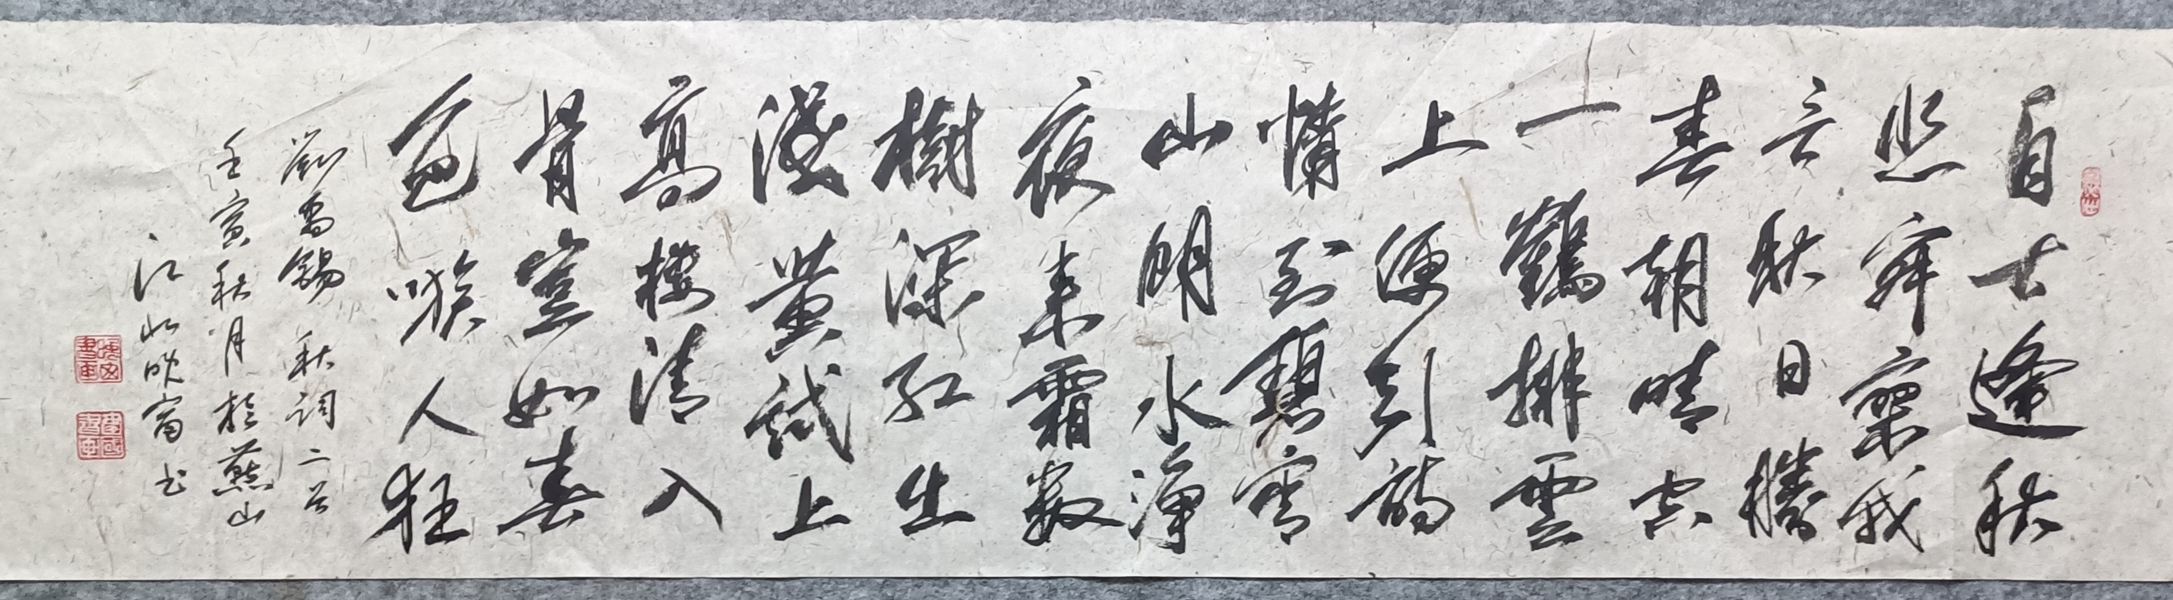 自古逢秋
悲寂寥我
言秋日勝
春朝晴空
一鶴排雲
上便引詩
情到碧霄
山明水淨
夜来霜数
樹深红出
淺黄試上
高樓清入
骨豈如春
色嗾人狂
劉禹錫秋詞二首
壬寅秋月於燕山
江 书